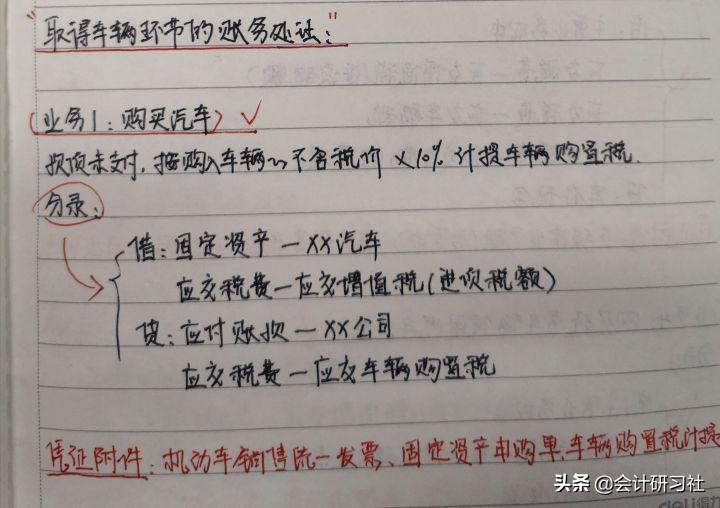 "取得车辆环节的账务处理："
(业务1：购买汽车) ✓
款项未支付，按购入车辆的不含税价×10%计提车辆购置税.
分录：
借：固定资产—XX汽车
应交税费—应交增值税(进项税额)
贷：应付账款—XX公司
应交税费—应交车辆购置税
凭证附件：机动车销售统一发票、固定资产申购单、车辆购置税计提
头条 @会计研习社
deli得力